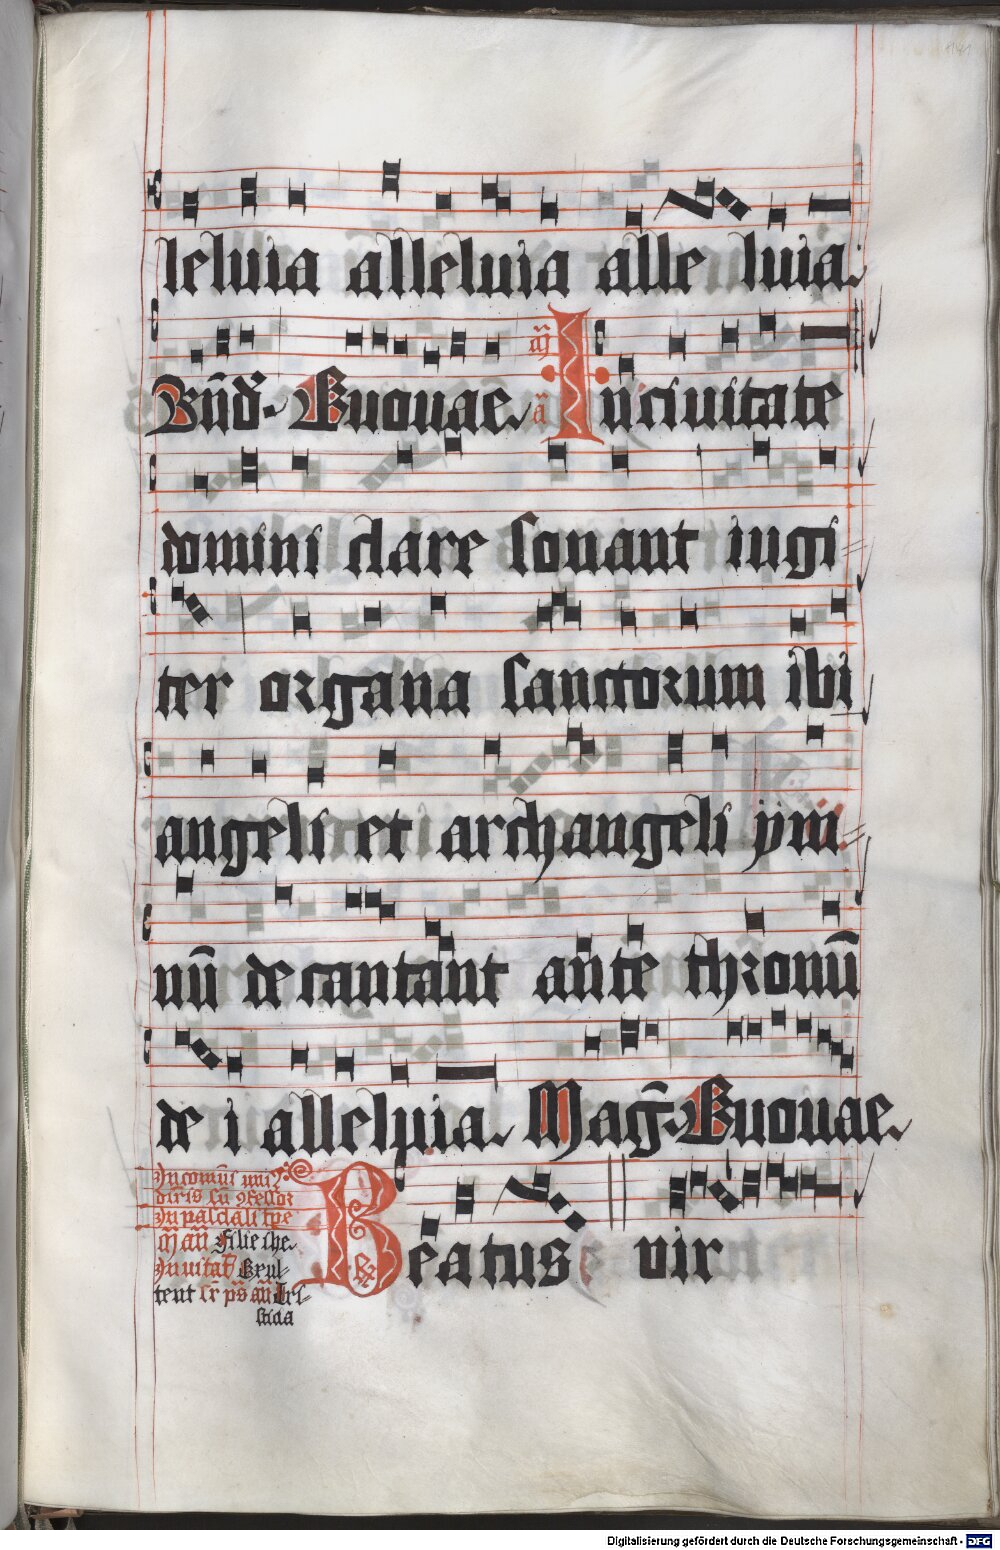 leluia alleluia alle luia.
Bñd. Euouae. In ciuitate
domini clare sonant iugi
ter organa sanctorum ibi
angeli et archangeli ÿm
nū de cantant ante thronū
de i alleluia. Mag̃. Euouae.
In pascali tpe
Beatus vir
stida
Digitalisierung gefördert durch die Deutsche Forschungsgemeinschaft - DFG